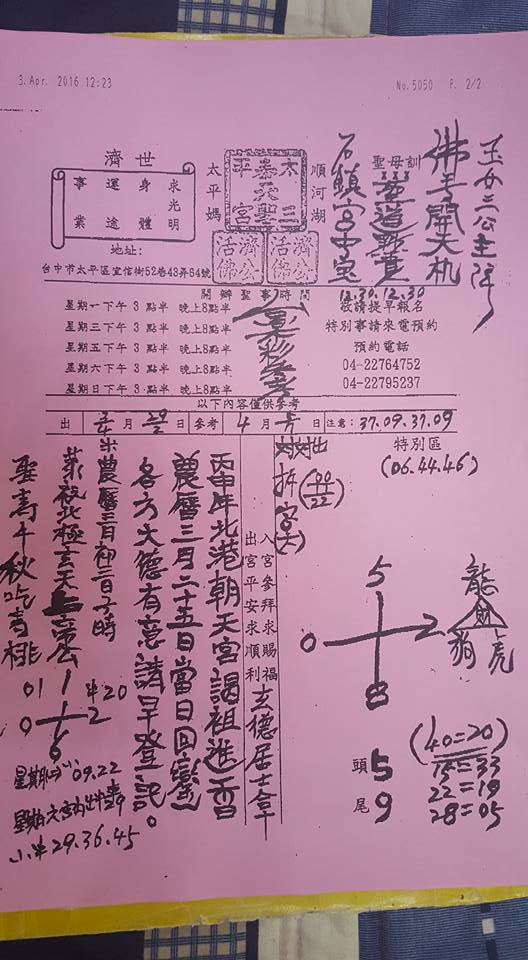 3. Apr. 2016 12:23
No. 5050 P. 2/2
玉女三公主降
佛手開天机
聖母訓
石鎮宮中
12.30.12.30
順河湖
太三泰聖平宮
太平媽
濟公活佛
濟公活佛
濟世
求光明
身體
運途
事業
地址:
台中市太平區宜信街52巷43弄64號
開辦聖事時間
星期一下午 3 點半 晚上8點半
星期三下午 3 點半 晚上8點半
星期五下午 3 點半 晚上8點半
星期六下午 3 點半 晚上8點半
星期日下午 3 點半 晚上8點半
敬請提早報名
特別事請來電預約
預約電話
04-22764752
04-22795237
以下內容僅供參考
出 日 參考 4 月 日 注意: 37.09.37.09
特別區
(06.44.46)
5
0 2
8
龍
財
狗 虎
(40=20)
15=33
22=19
28=05
頭 5
尾 9
對對出
拆字
22
入宮參拜求賜福
出宮平安求順利
玄德居士拿
丙申年北港朝天宮謁祖進香
農曆三月二十五日當日回鑾
各方大德有意請早登記。
農曆三月初三日子時
恭祝北極玄天上帝公
聖壽千秋吃壽桃
01 1 20
0 2
6
09.22
29.36.45